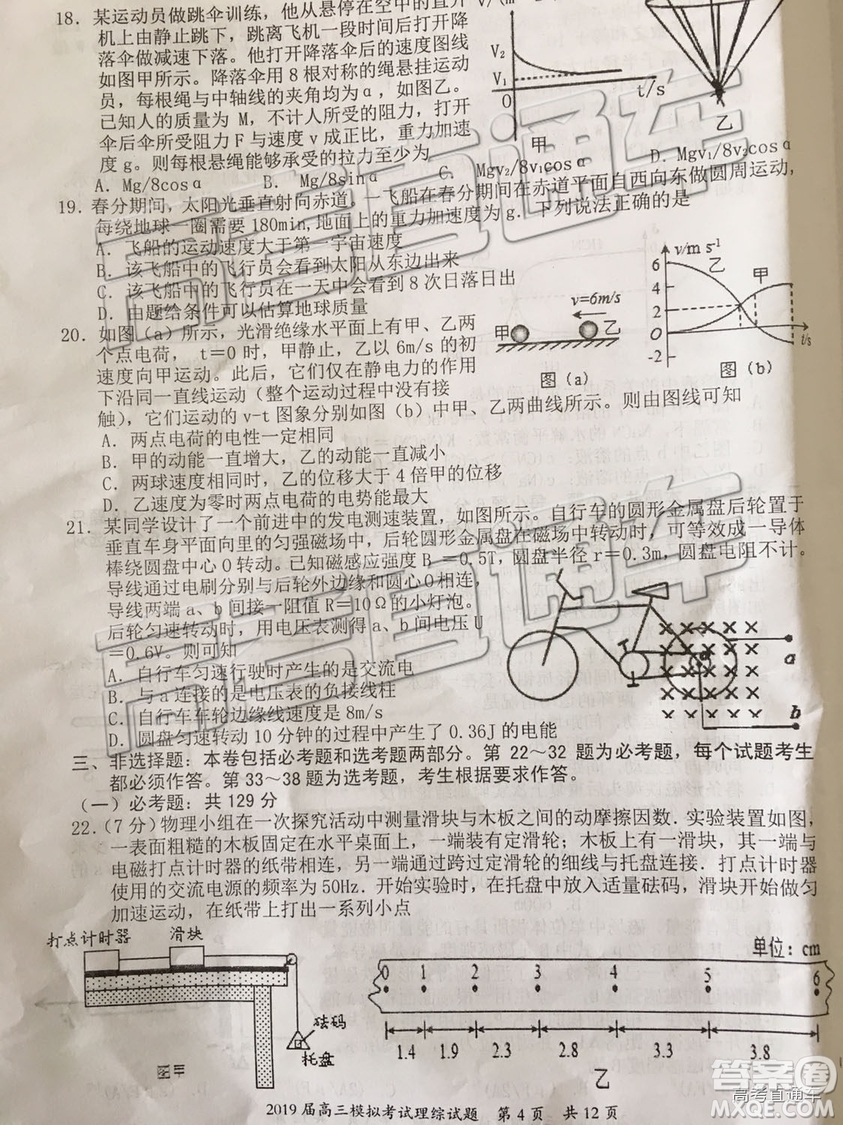 18. 某运动员做跳伞训练，他从悬停在空中的直升
机上由静止跳下，跳离飞机一段时间后打开降
落伞做减速下落。他打开降落伞后的速度图线
如图甲所示。降落伞用 8 根对称的绳悬挂运动
员，每根绳与中轴线的夹角均为α，如图乙。
已知人的质量为 M，不计人所受的阻力，打开
伞后伞所受阻力 F 与速度 v 成正比，重力加速
度 g。则每根悬绳能够承受的拉力至少为
V2
V1
O
t/s
甲
乙
A. Mg/8cosα B. Mg/8sinα C. Mgv₂/8v₁cosα D. Mgv₁/8v₂cosα
19. 春分期间，太阳光垂直射向赤道，一飞船在春分期间在赤道平面自西向东做圆周运动，
每绕地球一圈需要 180min,地面上的重力加速度为 g。下列说法正确的是
A. 飞船的运动速度大于第一宇宙速度
B. 该飞船中的飞行员会看到太阳从东边出来
C. 该飞船中的飞行员在一天中会看到 8 次日落日出
D. 由题给条件可以估算地球质量
20. 如图(a)所示，光滑绝缘水平面上有甲、乙两
个点电荷， t＝0 时，甲静止，乙以 6m/s 的初
速度向甲运动。此后，它们仅在静电力的作用
下沿同一直线运动（整个运动过程中没有接
触），它们运动的 v-t 图象分别如图（b）中甲、乙两曲线所示。则由图线可知
v=6m/s
甲
乙
图 (a)
v/m s⁻¹
6
4
2
O
-2
乙
甲
t/s
图 (b)
A. 两点电荷的电性一定相同
B. 甲的动能一直增大，乙的动能一直减小
C. 两球速度相同时，乙的位移大于 4 倍甲的位移
D. 乙速度为零时两点电荷的电势能最大
21. 某同学设计了一个前进中的发电测速装置，如图所示。自行车的圆形金属盘后轮置于
垂直车身平面向里的匀强磁场中，后轮圆形金属盘在磁场中转动时，可等效成一导体
棒绕圆盘中心 O 转动。已知磁感应强度 B＝0.5T，圆盘半径 r＝0.3m，圆盘电阻不计。
导线通过电刷分别与后轮外边缘和圆心 O 相连，
导线两端 a、b 间接一阻值 R＝10Ω的小灯泡。
后轮匀速转动时，用电压表测得 a、b 间电压 U
＝0.6V。则可知
A. 自行车匀速行驶时产生的是交流电
B. 与 a 连接的是电压表的负接线柱
C. 自行车车轮边缘线速度是 8m/s
D. 圆盘匀速转动 10 分钟的过程中产生了 0.36J 的电能
a
b
三、非选择题：本卷包括必考题和选考题两部分。第 22～32 题为必考题，每个试题考生
都必须作答。第 33～38 题为选考题，考生根据要求作答。
（一）必考题：共 129 分
22.(7 分) 物理小组在一次探究活动中测量滑块与木板之间的动摩擦因数. 实验装置如图,
一表面粗糙的木板固定在水平桌面上，一端装有定滑轮；木板上有一滑块，其一端与
电磁打点计时器的纸带相连，另一端通过跨过定滑轮的细线与托盘连接. 打点计时器
使用的交流电源的频率为 50Hz. 开始实验时，在托盘中放入适量砝码，滑块开始做匀
加速运动，在纸带上打出一系列小点
打点计时器 滑块
砝码
托盘
图甲
单位: cm
0 1 2 3 4 5 6
1.4 1.9 2.3 2.8 3.3 3.8
乙
2019 届高三模拟考试理综试题 第 4 页 共 12 页
高考直通车
高考直通车
高考直通车
答案圈
MXQE.COM